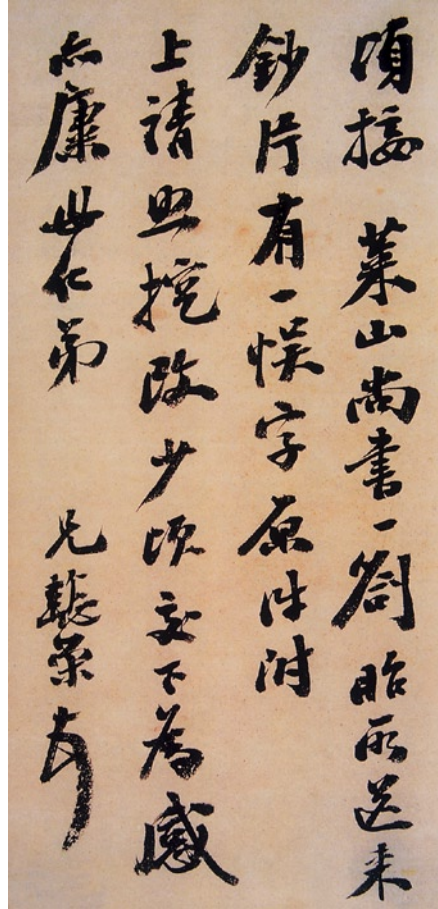 頃接 萊山尚書一劄昨所送来
鈔片有一悮字原件附
上請照挖改少頃交下為感
康世仁弟 兄懿荣